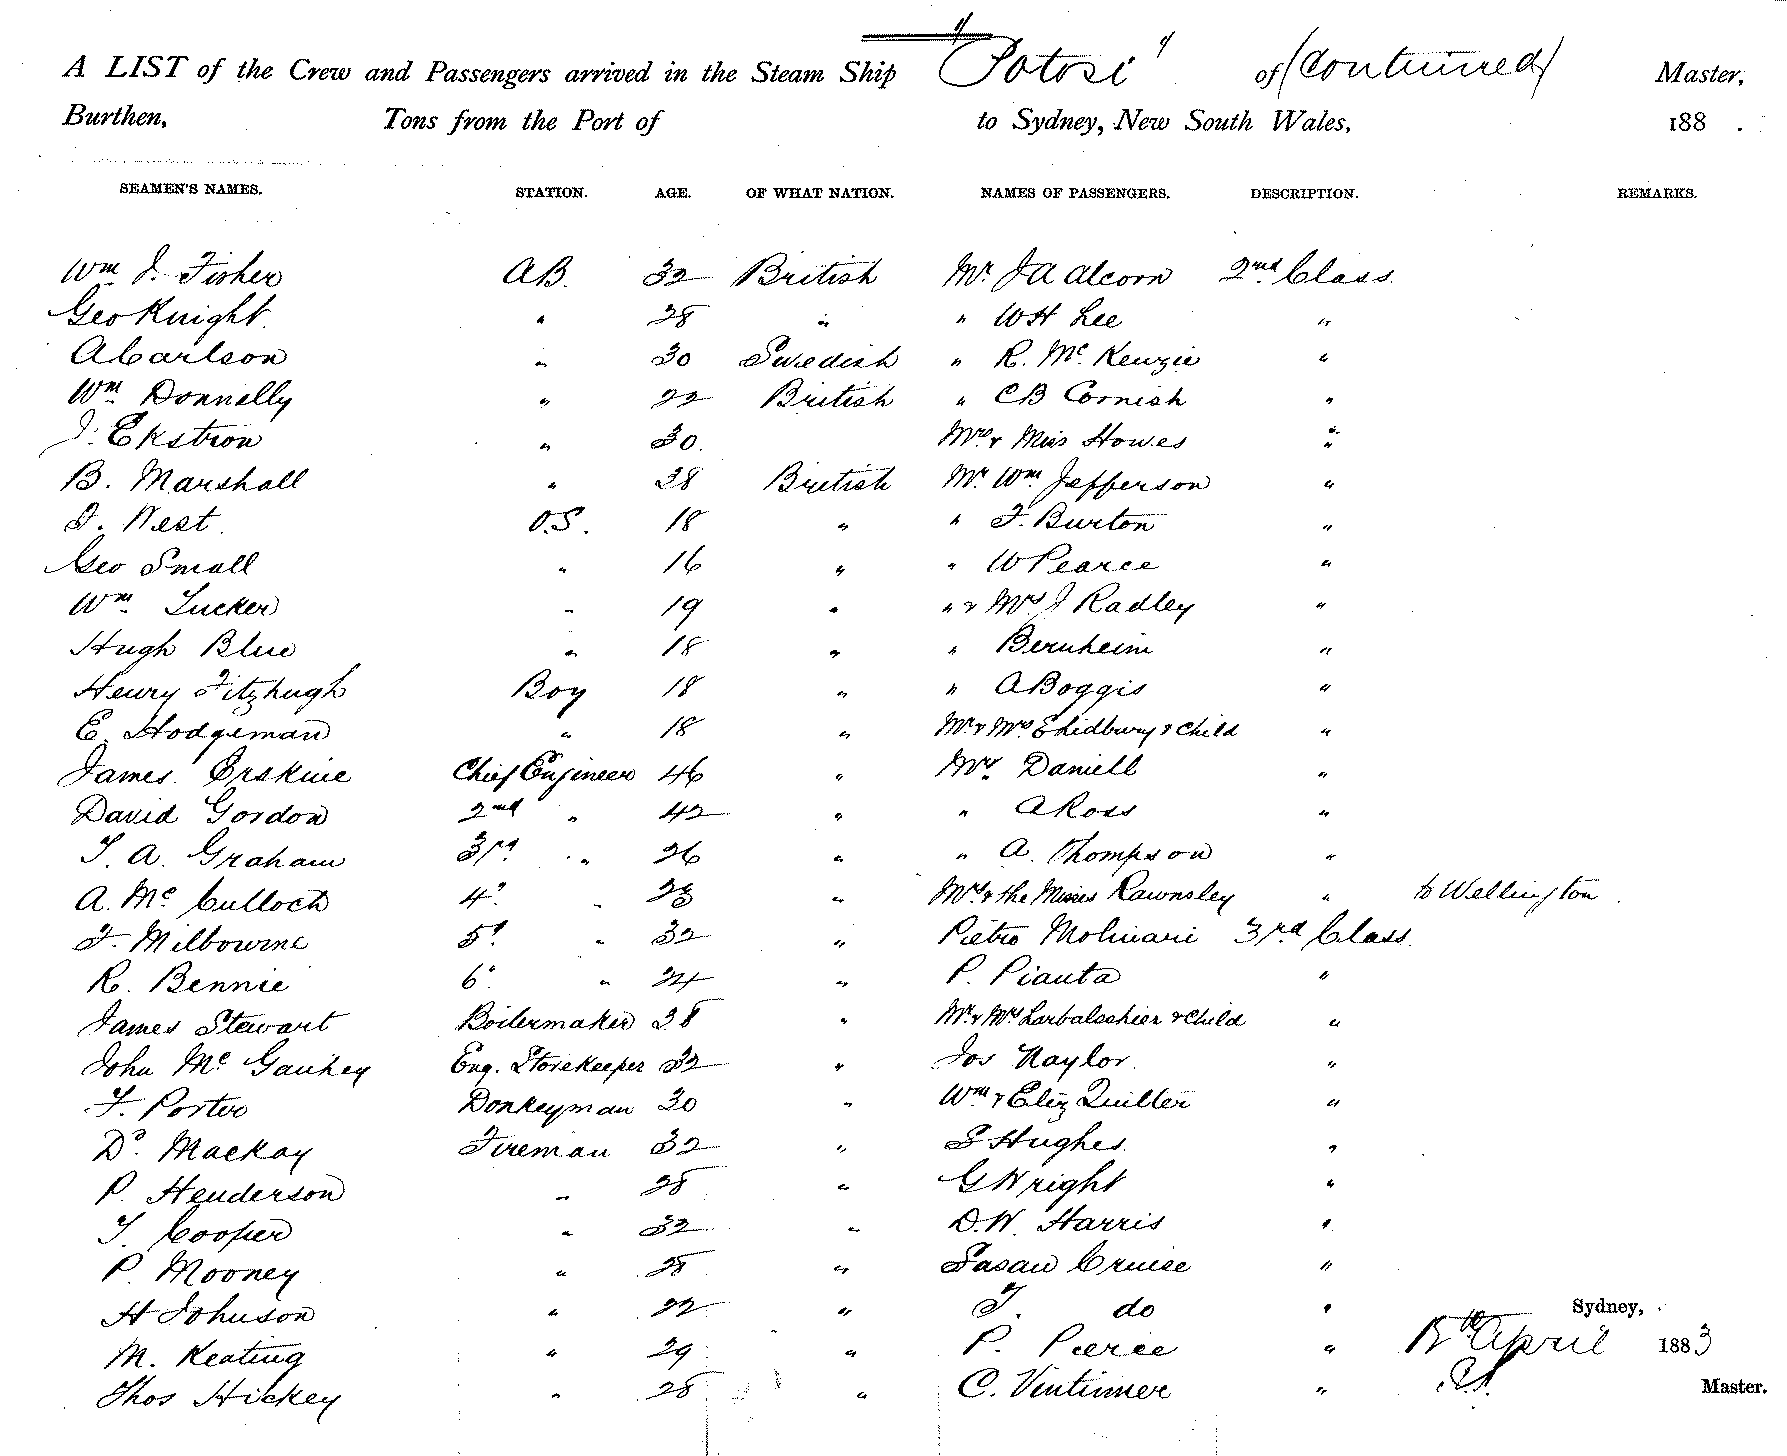 A LIST of the Crew and Passengers arrived in the Steam Ship "Potosi" of (Continued) Master,
Burthen, Tons from the Port of to Sydney, New South Wales, 188 .
SEAMEN'S NAMES. STATION. AGE. OF WHAT NATION. NAMES OF PASSENGERS. DESCRIPTION. REMARKS.
Wm J. Fisher AB. 32 British Mr. J A Alcorn 2nd Class
Geo Knight " 28 " " W H Lee "
A Carlson " 30 Swedish " R. Mc Kenzie "
Wm Donnelly " 22 British " C B Cornish "
J. Ekstron " 30. Mrs & Miss Howes "
B. Marshall " 28 British Mr Wm Jefferson "
J. West O.S. 18 " " F. Burton "
Geo Small " 16 " " W Pearce "
Wm Tucker " 19 " " & Mrs J Radley "
Hugh Blue " 18 " " Bernheim "
Henry Fitzhugh Boy 18 " " A Boggis "
E. Hodgeman " 18 " Mr & Mrs & Child "
James Erskine Chief Engineer 46 " Mrs Daniell "
David Gordon 2nd " 42 " " A Ross "
T. A. Graham 3rd " 26 " " A. Thompson "
A. Mc Culloch 4th " 28 " Mrs & the Misses Rawnsley " to Wellington
F. Milbourne 5th " 32 " Pietro Molinari 3rd Class
R. Bennie 6th " 24 " P. Pianta "
James Stewart Boilermaker 38 " Mr & Mrs Larbalechier & Child "
John Mc Gauhey Eng. Storekeeper 32 " Jos Naylor "
F. Porter Donkeyman 30 " Wm & Eliz Quilter "
D. Mackay Fireman 32 " S Hughes "
P. Henderson " 28 " G Wright "
T. Cooper " 32 " D. W. Harris "
P. Mooney " 28 " Susan Cruise "
H Johnson " 22 " T. do " Sydney,
M. Keating " 29 " P. Pierce " April 1883
Thos Hickey " 28 " C. Vintinner " Master.